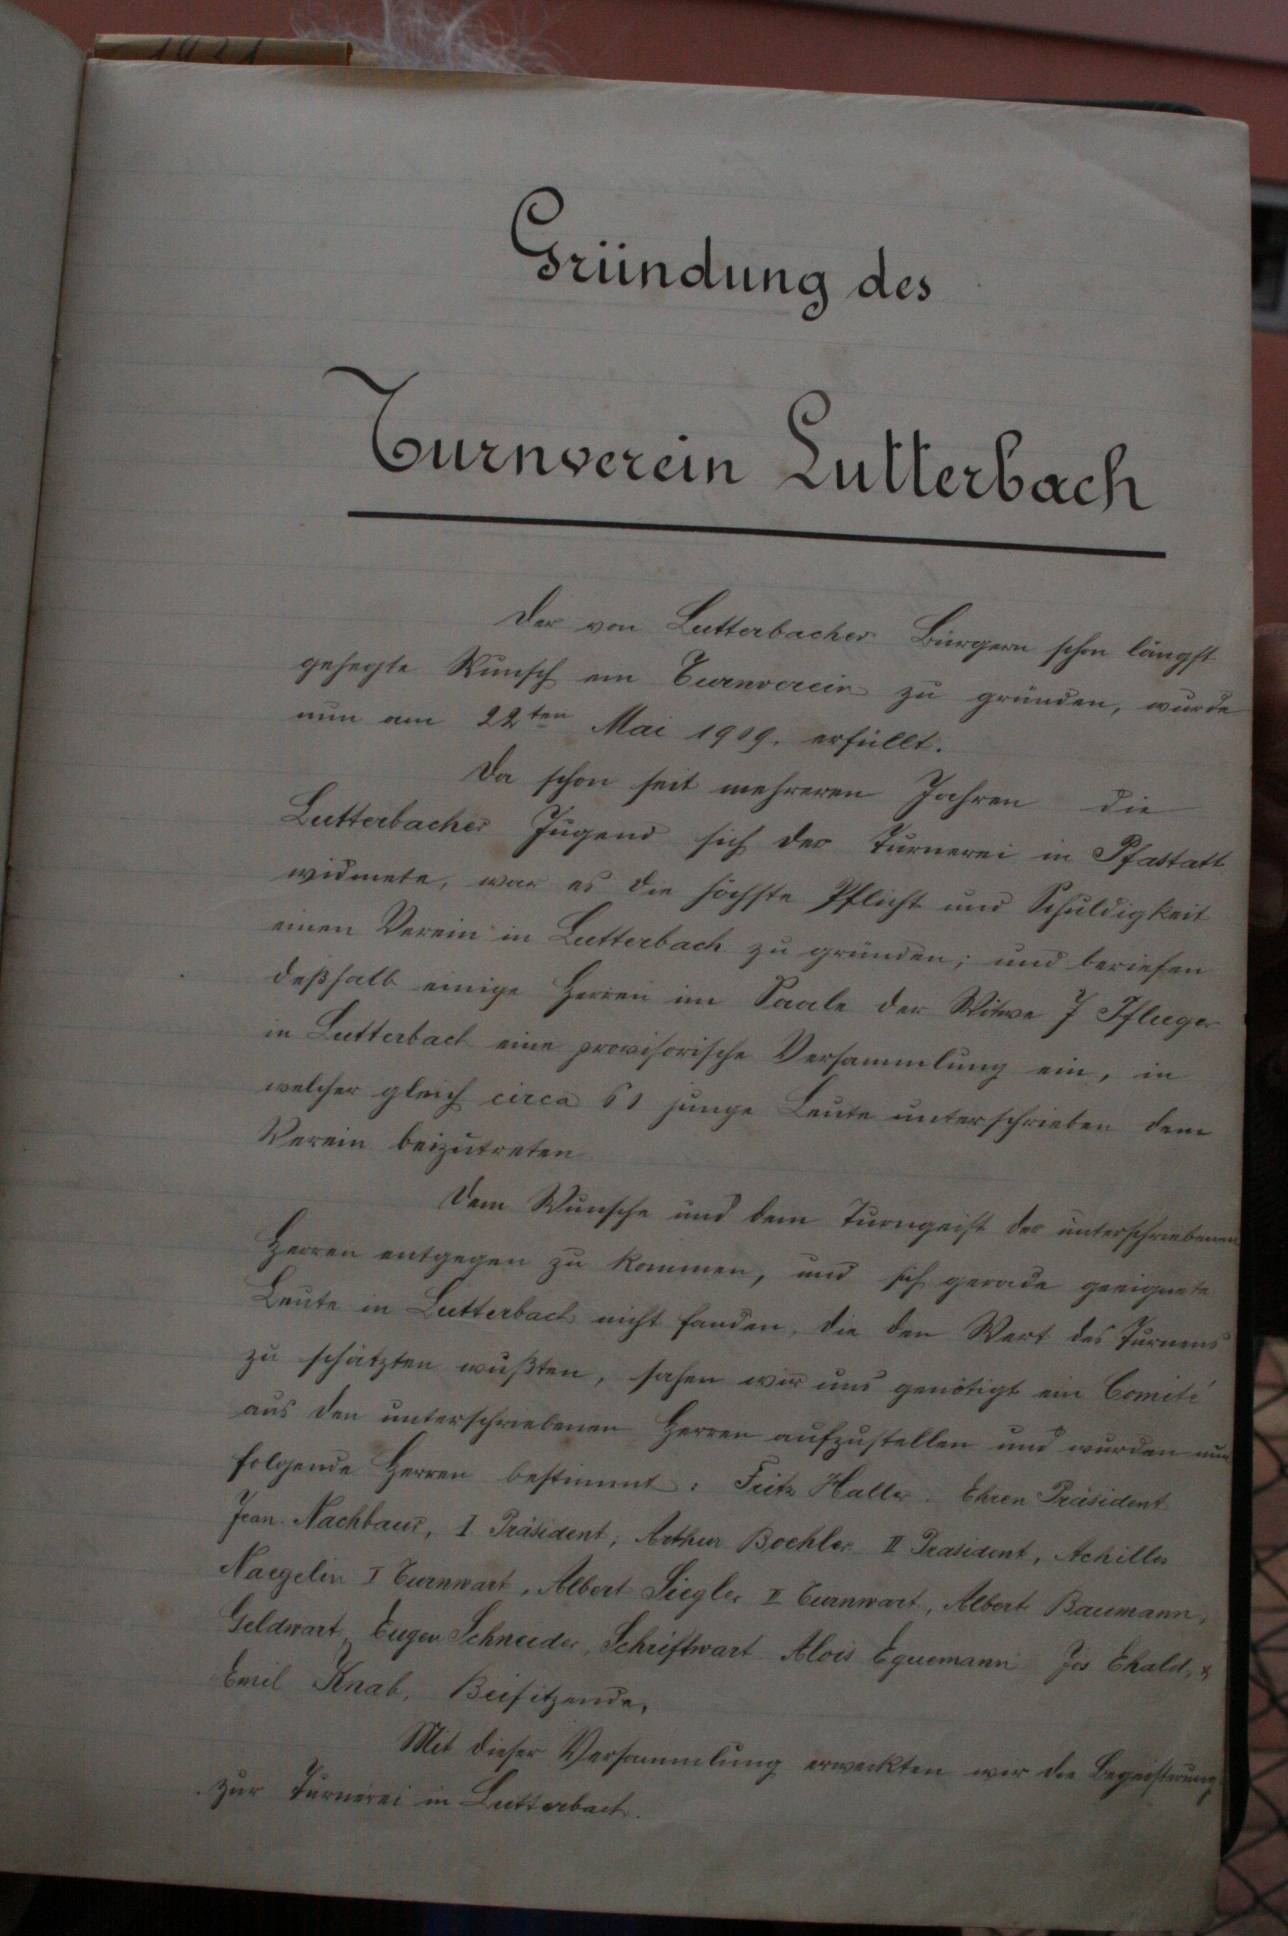 1921
Gründung des
Turnverein Lutterbach
Der von Lutterbacher Bürgern schon längst
gehegte Wunsch ein Turnverein zu gründen, wurde
nun am 22ten Mai 1909. erfüllt.
Da schon seit mehreren Jahren die
Lutterbacher Jugend sich der Turnerei in Pfastatt
widmete, war es die höchste Pflicht und Schuldigkeit
einen Verein in Lutterbach zu gründen; und beriefen
deßhalb einige Herren im Saale der Witwe J Pflueger
in Lutterbach eine provisorische Versammlung ein, in
welcher gleich circa 60 junge Leute unterschrieben dem
Verein beizutreten
Dem Wunsche und dem Turngeist der unterschriebenen
Herren entgegen zu kommen, und sich gerade geeignete
Leute in Lutterbach nicht fanden, die den Wert des Turnens
zu schätzten wußten, sahen wir uns genötigt ein Comité
aus den unterschriebenen Herren aufzustellen und wurden nun
folgende Herren bestimmt: Fritz Haller. Ehren Präsident
Jean Nachbaur, I Präsident, Arthur Boehler II Präsident, Achilles
Naegelin I Turnwart, Albert Siegler II Turnwart, Albert Baumann,
Geldwart, Eugen Schneider, Schriftwart Alois Eguemann Jos Ehald, &
Emil Knab, Beisitzende.
Mit dieser Versammlung erweckten wir die Begeisterung
zur Turnerei in Lutterbach.